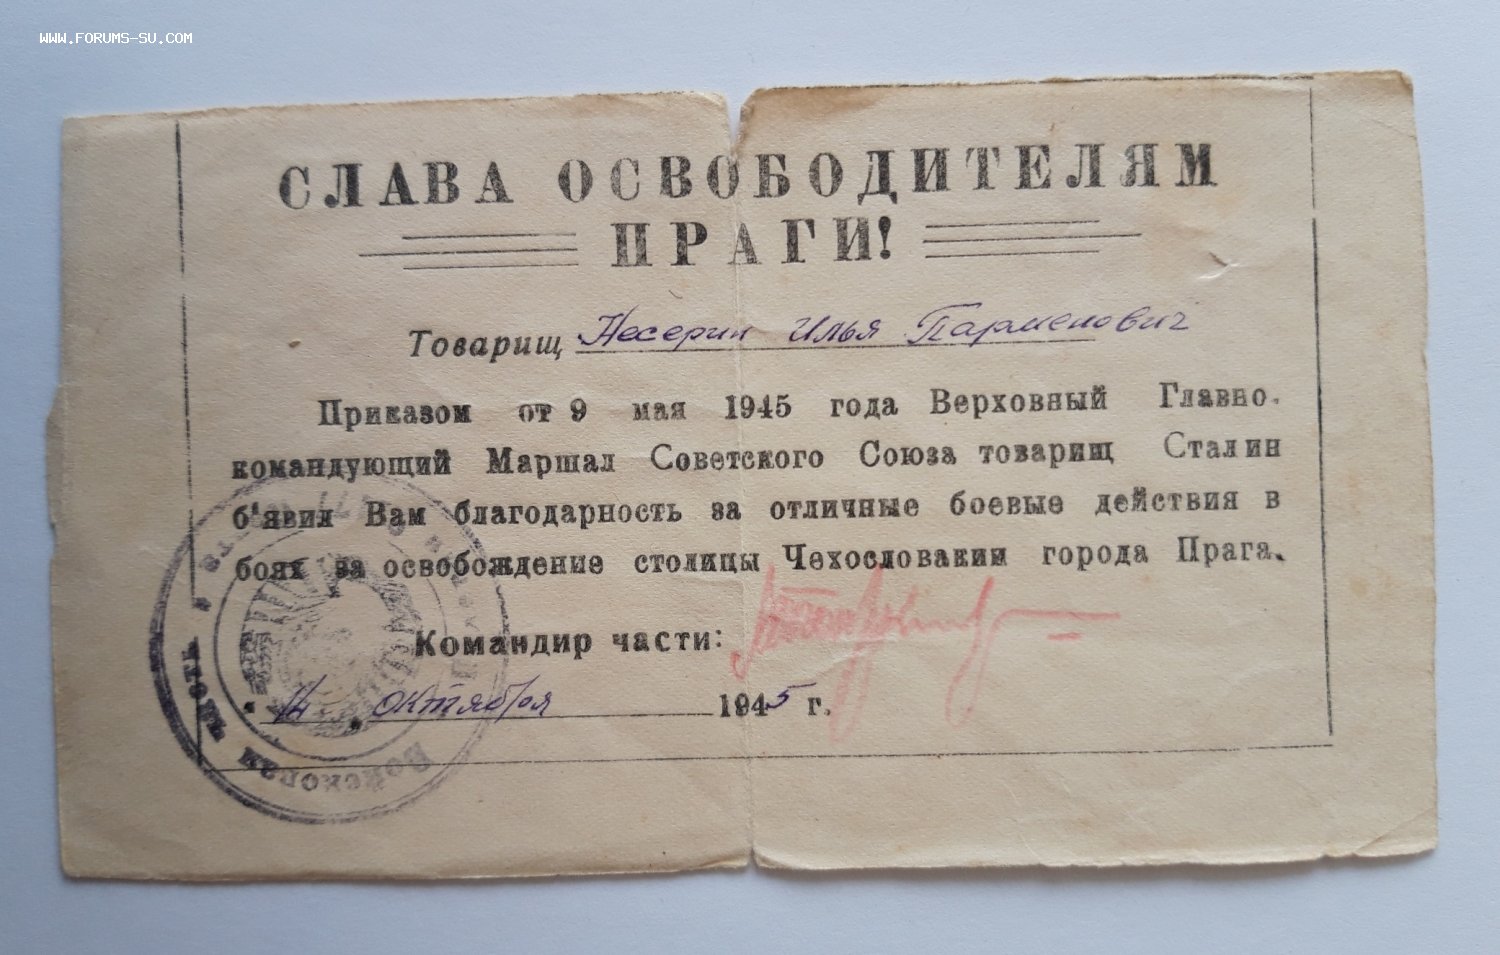 WWW.FORUMS-SU.COM
СЛАВА ОСВОБОДИТЕЛЯМ
ПРАГИ!
Товарищ Несерин Илья Парменович
Приказом от 9 мая 1945 года Верховный Главно.
командующий Маршал Советского Союза товарищ Сталин
б'явил Вам благодарность за отличные боевые действия в
боях за освобождение столицы Чехословакии города Прага.
Командир части:
14 октября 1945 г.
Войсковая часть